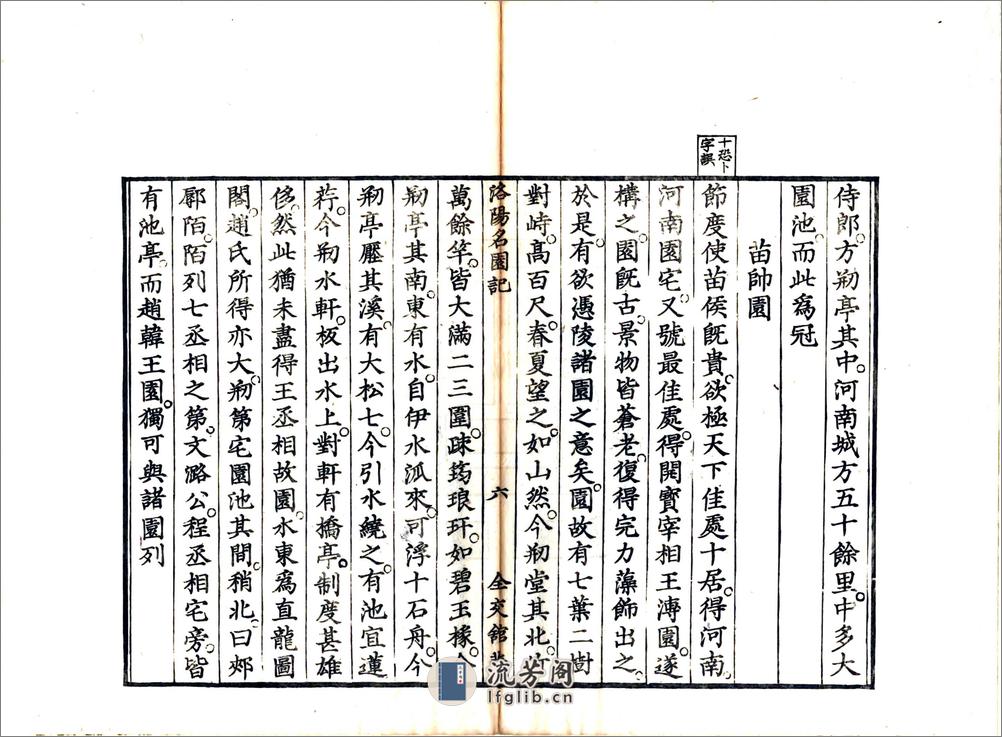 十恐卜
字誤
侍郎。方刱亭其中。河南城方五十餘里。中多大
園池。而此爲冠
苗帥園
節度使苗侯旣貴。欲極天下佳處十居。得河南。
河南園宅。又號最佳處。得開寶宰相王溥園。遂
構之。園旣古。景物皆蒼老。復得完力藻飾出之。
於是有欲憑陵諸園之意矣。園故有七葉二樹
對峙。高百尺。春夏望之。如山然。今刱堂其北。竹
洛陽名園記
六
全交館
萬餘竿。皆大滿二三圍。疎筠琅玕。如碧玉椽。今
刱亭其南。東有水。自伊水派來。可浮十石舟。今
刱亭壓其溪。有大松七。今引水繞之。有池宜蓮
荇。今刱水軒。板出水上。對軒有橋亭。制度甚雄
侈。然此猶未盡得王丞相故園。水東爲直龍圖
閣。趙氏所得亦大。刱第宅園池其間。稍北。曰郟
鄏陌。陌列七丞相之第。文潞公。程丞相宅旁。皆
有池亭。而趙韓王園。獨可與諸園列
流芳阁
lfglib.cn